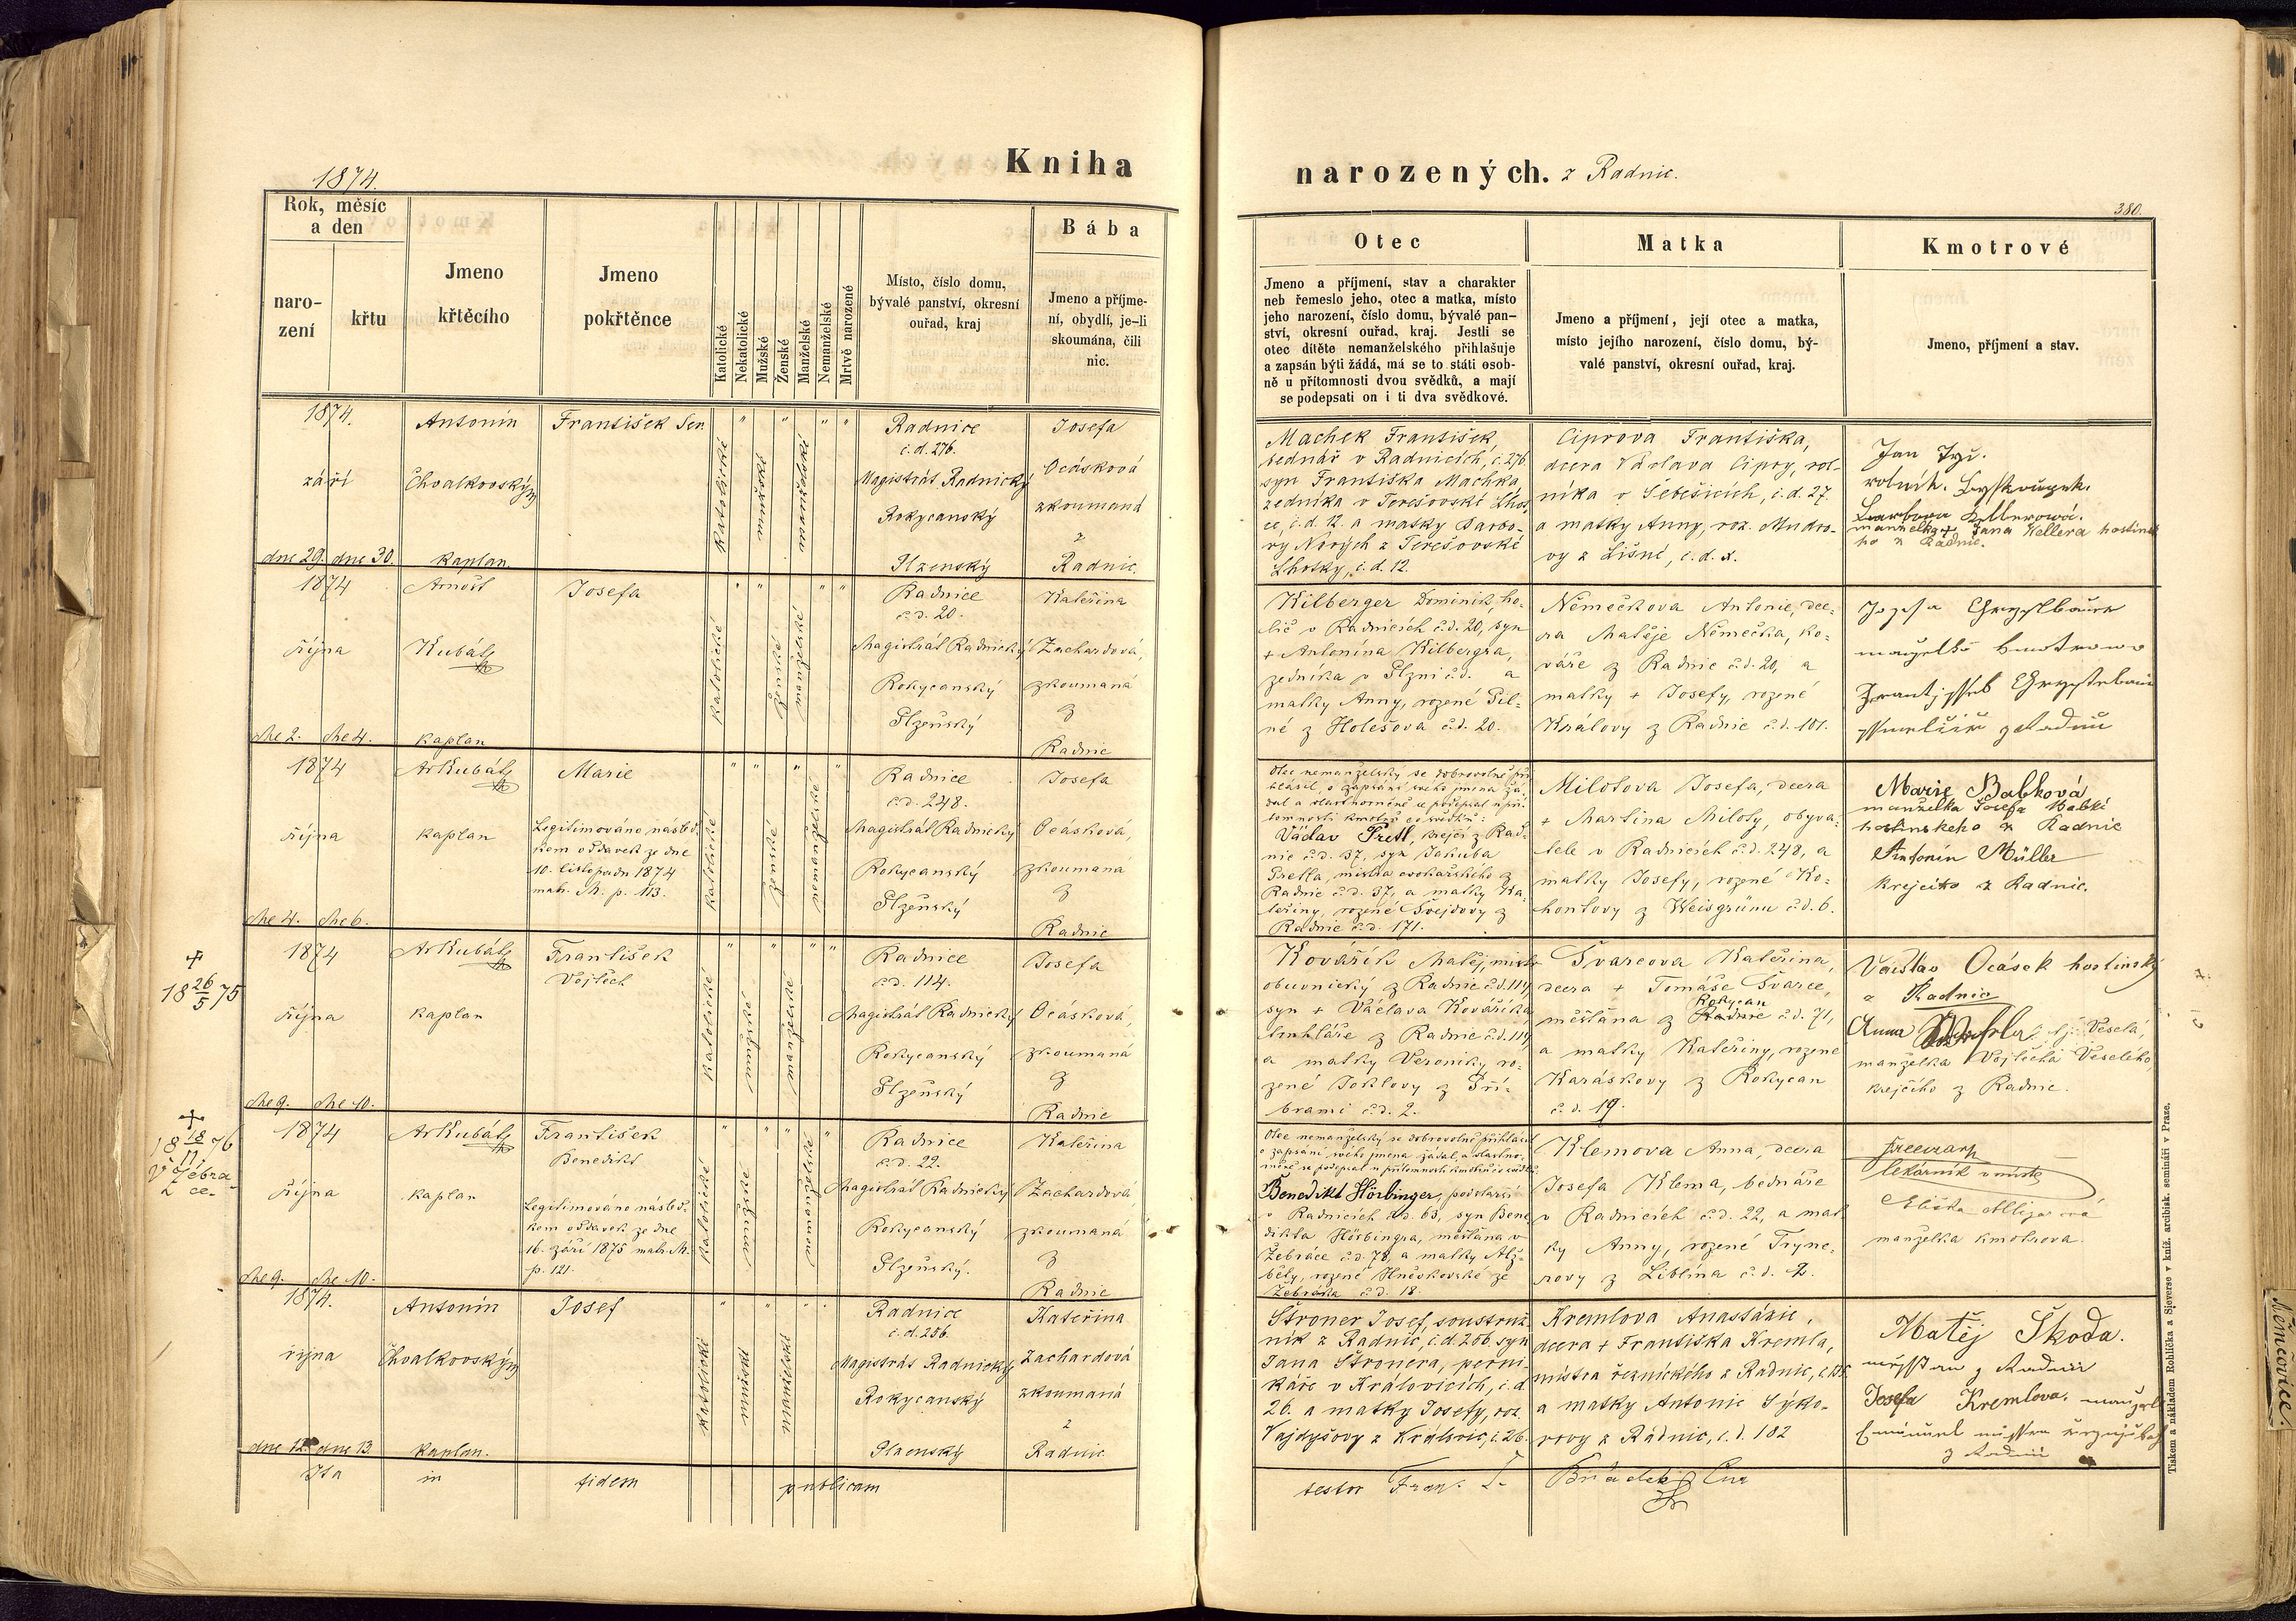 1874.
Kniha
narozených. z Radnic.
380.
Rok, měsíc
a den
naro-
zení
křtu
Jmeno
křtěcího
Jmeno
pokřtěnce
Katolické
Nekatolické
Mužské
Ženské
Manželské
Nemanželské
Mrtvě narozené
Místo, číslo domu,
bývalé panství, okresní
ouřad, kraj
Bába
Jmeno a příjme-
ní, obydlí, je-li
skoumána, čili
nic.
Otec
Jmeno a příjmení, stav a charakter
neb řemeslo jeho, otec a matka, místo
jeho narození, číslo domu, bývalé pan-
ství, okresní ouřad, kraj. Jestli se
otec dítěte nemanželského přihlašuje
a zapsán býti žádá, má se to státi osob-
ně u přítomnosti dvou svědků, a mají
se podepsati on i ti dva svědkové.
Matka
Jmeno a příjmení, její otec a matka,
místo jejího narození, číslo domu, bý-
valé panství, okresní ouřad, kraj.
Kmotrové
Jmeno, příjmení a stav.
1874.
září
dne 29. dne 30.
Antonín
Chvalkovský
kaplan
František Ser.
katolické
mužské
manželské
Radnice
č.d. 276.
Magistrát Radnický
Rokycanský
Plzenský
Josefa
Ocásková
zkoumaná
z
Radnic.
Machek František,
bednář v Radnicích, č. 276.
syn Františka Machka,
zedníka v Terešovské Lhot
ce, č.d. 12. a matky Barbo-
ry Nových z Terešovské
Lhotky, č.d. 12.
Ciprova Františka,
dcera Václava Cipry, rol-
níka v Šebešicích, č.d. 27.
a matky Anny, roz. Mudro-
vy z Lišné, č.d. x.
Jan
rolník.
Barbora Kellerová.
manželka Jana Kellera hostins
ho z Radnic.
1874
října
dne 2. dne 4.
Arnošt
Kubát
kaplan
Josefa
katolické
ženské
manželské
Radnice
č.d. 20.
Magistrát Radnický
Rokycanský
Plzeňský
Kateřina
Zachardová,
zkoumaná
z
Radnic
Kilberger Dominik, ho-
lič v Radnicích č.d. 20, syn
+ Antonína Kilbergra,
zedníka v Plzni č.d. a
matky Anny, rozené Pil-
né z Holešova č.d. 20.
Němečkova Antonie, dce-
ra Matěje Němečka, ko-
váře z Radnic č.d. 20, a
matky + Josefy, rozené
Královy z Radnic č.d. 101.
1874
října
dne 4. dne 6.
Ar Kubát
kaplan
Marie
Legitimováno násled-
kem oddavek ze dne
10. listopadu 1874
matr. M. p. 113.
katolické
ženské
nemanželské
Radnice
č.d. 248.
Magistrát Radnický
Rokycanský
Plzeňský
Josefa
Ocásková,
zkoumaná
z
Radnic
Otec nemanželský se dobrovolně při
hlásil, o zapsání svého jmena žá-
dal a vlastnoručně se podepsal u pří-
tomnosti kmotrů co svědků:
Václav Pretl, krejčí z Rad-
nic č.d. 37, syn Jakuba
Pretla, mistra cvokařského z
Radnic č.d. 37, a matky Ka-
teřiny, rozené Švejdovy z
Radnic č.d. 171.
Milotova Josefa, dcera
+ Martina Miloty, obyva-
tele v Radnicích č.d. 248, a
matky Josefy, rozené Ko-
hontovy z Weisgrünu č.d. 6.
Marie Babková
manželka Josefa Babki
hostinskeho z Radnic
Antonín Müller
krejčího z Radnic.
+
18 26/5 75
1874
října
dne 9. dne 10.
Ar Kubát
kaplan
František
Vojtěch
katolické
mužské
manželské
Radnice
č.d. 114.
Magistrát Radnický
Rokycanský
Plzeňský
Josefa
Ocásková,
zkoumaná
z
Radnic
Kovářík Matěj, mistr
obuvnický z Radnic č.d. 114,
syn + Václava Kováříka,
truhláře z Radnic č.d. 114
a matky Veroniky, ro-
zené Joklovy z Pří-
brami č.d. 2.
Švarcova Kateřina,
dcera + Tomáše Švarce,
Rokycan
měšťana z Radnic č.d. 71,
a matky Kateřiny, rozené
Karáskovy z Rokycan
č.d. 19.
Václav Ocásek hostinský
z Radnic
Anna Veselá,
manželka Vojtěcha Veselého,
krejčího z Radnic.
+
18 18/11 76
v Žebra-
ce.
1874
října
dne 9. dne 10.
Ar Kubát
kaplan
František
Benedikt
Legitimováno násled-
kem oddavek ze dne
16. září 1875 matr. M.
p. 121.
katolické
mužské
nemanželské
Radnice
č.d. 22.
Magistrát Radnický
Rokycanský
Plzeňský.
Kateřina
Zachardová,
zkoumaná
z
Radnic
Otec nemanželský se dobrovolně přihlásil
o zapsání svého jmena žádal, a vlastno-
ručně se podepsal u přítomnosti kmotrů co svědků:
Benedikt Hörbinger, podstarší
v Radnicích č.d. 63, syn Bene
dikta Hörbingra, měšťana v
Žebráce č.d. 78, a matky Alž-
běty, rozené Hněvkovské ze
Žebráka č.d. 18.
Klemova Anna, dcera
Josefa Klema, bednáře
v Radnicích č.d. 22, a mat
ky Anny, rozené Tryne-
rovy z Liblína č.d. 2.
lékárník v místě
manželka kmotrova.
1874.
října
dne 12. dne 13.
Antonín
Chvalkovský
kaplan.
Josef
katolické
mužské
manželské
Radnice
č.d. 256.
Magistrát Radnický
Rokycanský
Plzenský
Kateřina
Zachardová
zkoumaná
z
Radnic
Štroner Josef, soustruž-
ník z Radnic, č.d. 256. syn
Jana Štronera, perní-
káře v Královicích, č.d.
26. a matky Josefy, roz.
Vajdyšovy z Královic, č. 26.
Kremlova Anastázie,
dcera + Františka Kremla,
mistra řeznického z Radnic,
a matky Antonie Sýko-
rovy z Radnic, č.d. 182
Matěj Škoda.
Josefa Kremlova.
Ita in fidem publicam
testor Fran. T.
Tiskem a nákladem Rohlíčka a Sieverse v kníž. arcibisk. semináři v Praze.
Němčovice.